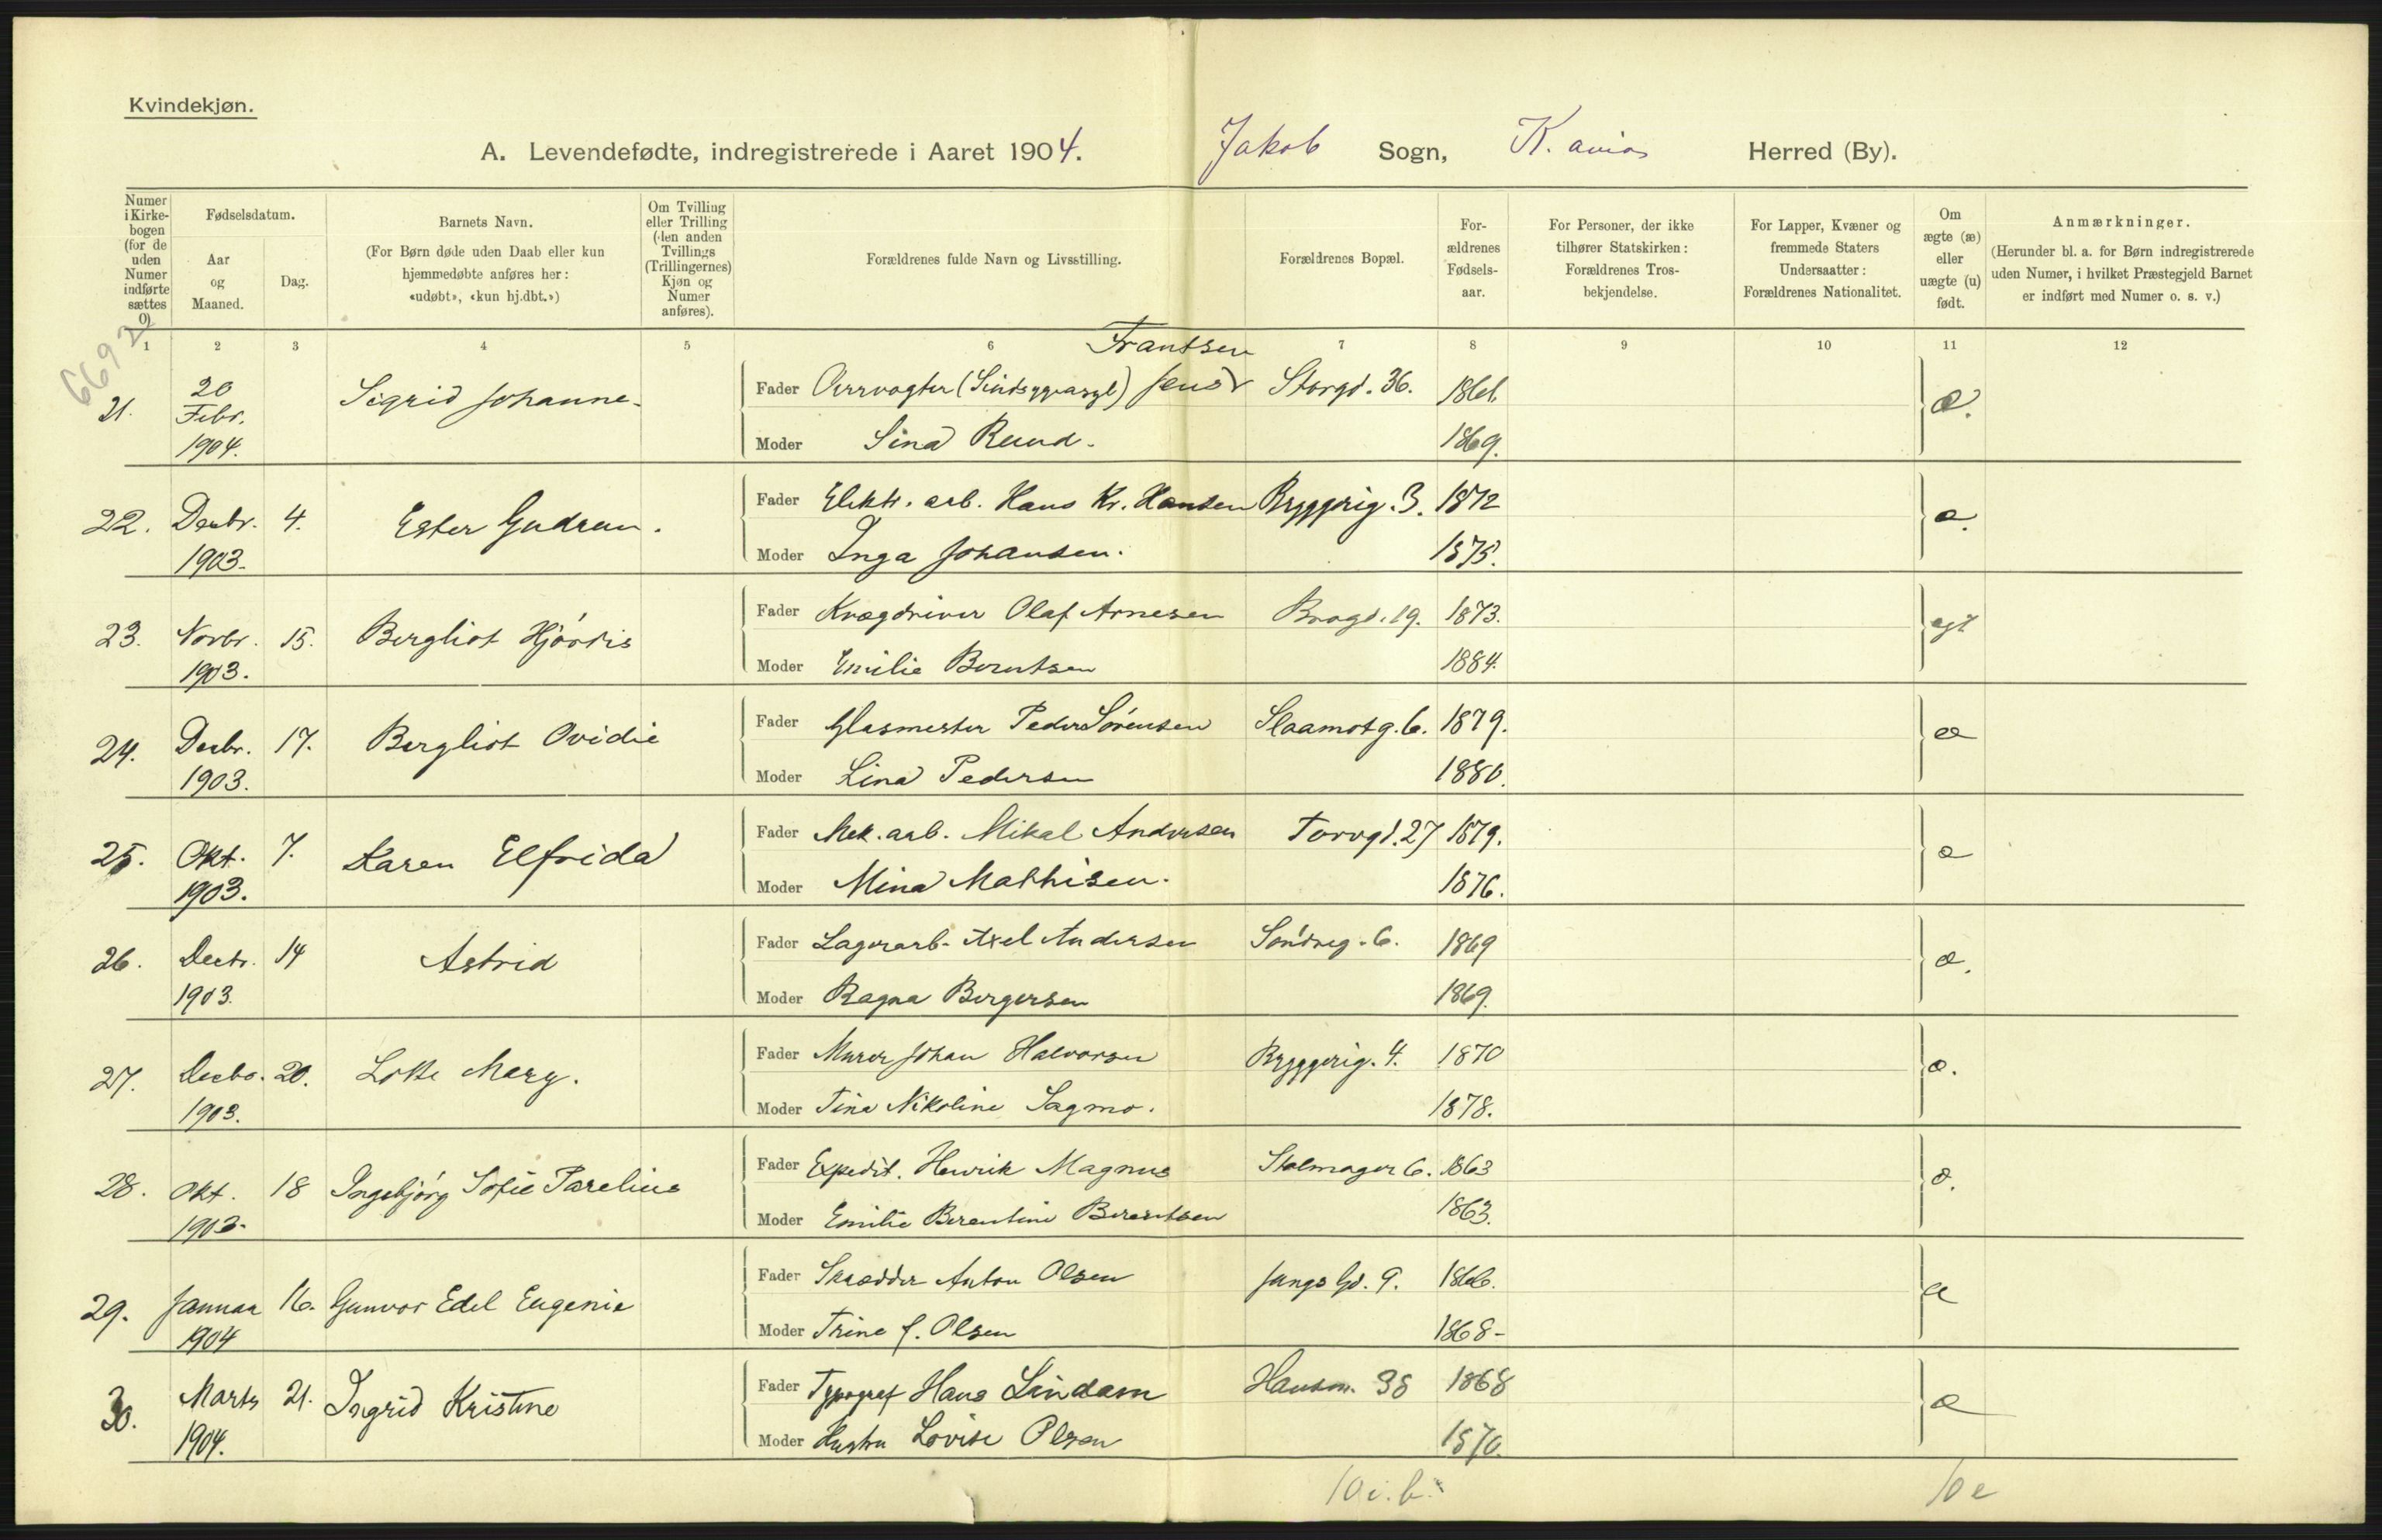 Kvindekjøn.
A. Levendefødte, indregistrerede i Aaret 1904. Jakob Sogn, K.ania Herred (By).
Numer i Kirkebogen (for de uden Numer indførte sættes 0)
Fødselsdatum.
Aar og Maaned.
Dag.
Barnets Navn.
(For Børn døde uden Daab eller kun hjemmedøbte anføres her: «udøbt», «kun hj.dbt.»)
Om Tvilling eller Trilling (den anden Tvillings (Trillingernes) Kjøn og Numer anføres).
Forældrenes fulde Navn og Livsstilling.
Forældrenes Bopæl.
Forældrenes Fødselsaar.
For Personer, der ikke tilhører Statskirken: Forældrenes Trosbekjendelse.
For Lapper, Kvæner og fremmede Staters Undersaatter: Forældrenes Nationalitet.
Om ægte (æ) eller uægte (u) født.
Anmærkninger.
(Herunder bl. a. for Børn indregistrerede uden Numer, i hvilket Præstegjeld Barnet er indført med Numer o. s. v.)
1 2 3 4 5 6 7 8 9 10 11 12
6692
Frantsen
21. 20 Febr. 1904. Sigrid Johanne. Fader (Sindsygeasyl) Jens Storgd. 36. 1861. æ.
Moder Sina Ruud. 1869.
22. Decbr. 4. 1903. Ester Gudrun. Fader Elektr. arb. Hans Kr. Hansen Bryggerig. 3. 1872 æ.
Moder Inga Johansen. 1875.
23. Novbr. 15. 1903. Bergliot Hjørdis Fader Olaf Arnesen Brogd. 19. 1873. egt
Moder Emilie Berntsen 1884.
24. Decbr. 17. 1903. Bergliot Ovidie Fader Glasmester Peder Sörensen Slaamotg. 6. 1879. æ
Moder Lina Pedersen 1880.
25. Okt. 7. 1903. Karen Elfrida Fader Mek. arb. Mikal Andersen Torvgd. 27 1879. æ
Moder Mina Mathisen. 1876.
26. Decbr. 14 1903. Astrid Fader Lagerarb. Axel Andersen Söndreg. 6. 1869 æ.
Moder Ragna Bergersen 1869.
27. Decbr. 20. 1903. Lotte Mary. Fader Murer Johan Halvorsen Bryggerig. 4. 1870 æ.
Moder Tina Nikoline Sagmo. 1878.
28. Okt. 18 1903. Ingebjörg Sofie Parelius Fader Expedit. Henrik Magnus Stolmager 6. 1863 æ.
Moder Emilie Berentine Berentsen 1863.
29. Januar 16. 1904 Gunvor Edel Eugenie Fader Skrædder Anton Olsen Jungs Gd. 9. 1866. æ
Moder Trine J. Olsen 1868-
30. Marts 21. 1904. Ingrid Kristine Fader Typograf Hans Lindam Hausm. 38 1868 æ
Moder Hustru Lovise Olsen 1870.
10 i. b. 10 e